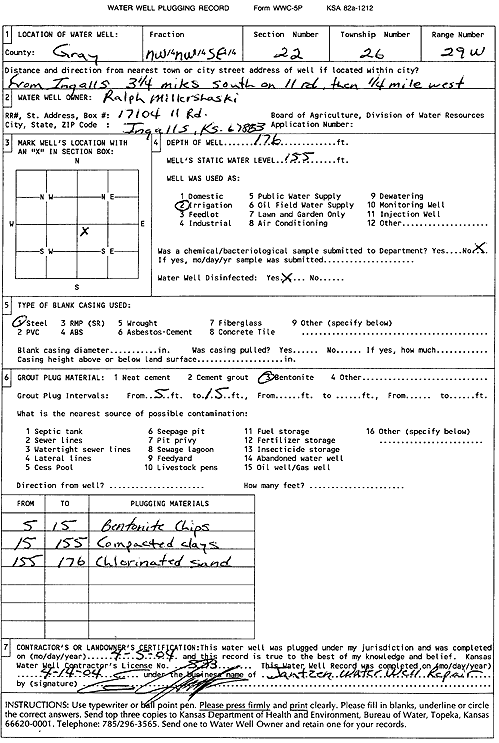 WATER WELL PLUGGING RECORD Form WWC-5P KSA 82a-1212
1 LOCATION OF WATER WELL: Fraction Section Number Township Number Range Number
County: Gray NW1/4NW1/4SE1/4 22 26 29W
Distance and direction from nearest town or city street address of well if located within city?
From Ingalls 3 1/4 miles south on 11 rd, then 1/4 mile west
2 WATER WELL OWNER: Ralph
RR#, St. Address, Box #: 17104 11 Rd. Board of Agriculture, Division of Water Resources
City, State, ZIP Code : Ingalls, KS. 67853 Application Number:
3 MARK WELL'S LOCATION WITH AN "X" IN SECTION BOX:
N
N W N E
W X E
S W S E
S
4 DEPTH OF WELL.....176......ft.
WELL'S STATIC WATER LEVEL.155...ft.
WELL WAS USED AS:
1 Domestic 5 Public Water Supply 9 Dewatering
2 Irrigation 6 Oil Field Water Supply 10 Monitoring Well
3 Feedlot 7 Lawn and Garden Only 11 Injection Well
4 Industrial 8 Air Conditioning 12 Other............
Was a chemical/bacteriological sample submitted to Department? Yes....No X
If yes, mo/day/yr sample was submitted....................
Water Well Disinfected: Yes X... No......
5 TYPE OF BLANK CASING USED:
1 Steel 3 RMP (SR) 5 Wrought 7 Fiberglass 9 Other (specify below)
2 PVC 4 ABS 6 Asbestos-Cement 8 Concrete Tile ....................
Blank casing diameter...........in. Was casing pulled? Yes...... No...... If yes, how much.........
Casing height above or below land surface....................in.
6 GROUT PLUG MATERIAL: 1 Neat cement 2 Cement grout 3 Bentonite 4 Other....................
Grout Plug Intervals: From..5..ft. to.15..ft., From..... to .....ft., From...... to......ft.
What is the nearest source of possible contamination:
1 Septic tank 6 Seepage pit 11 Fuel storage 16 Other (specify below)
2 Sewer lines 7 Pit privy 12 Fertilizer storage ....................
3 Watertight sewer lines 8 Sewage lagoon 13 Insecticide storage
4 Lateral lines 9 Feedyard 14 Abandoned water well
5 Cess Pool 10 Livestock pens 15 Oil well/Gas well
Direction from well? .................... How many feet? ....................
FROM TO PLUGGING MATERIALS
5 15 Bentonite Chips
15 155 Compacted clays
155 176 Chlorinated sand
7 CONTRACTOR'S OR LANDOWNER'S CERTIFICATION:This water well was plugged under my jurisdiction and was completed
on (mo/day/year)....4-5-04. and this record is true to the best of my knowledge and belief. Kansas
Water Well Contractor's License No. ..533.... This Water Well Record was completed on (mo/day/year)
..4-14-04.. under the business name of Jantzen Water Well Repair
by (signature)
INSTRUCTIONS: Use typewriter or ball point pen. Please press firmly and print clearly. Please fill in blanks, underline or circle
the correct answers. Send top three copies to Kansas Department of Health and Environment, Bureau of Water, Topeka, Kansas
66620-0001. Telephone: 785/296-3565. Send one to Water Well Owner and retain one for your records.